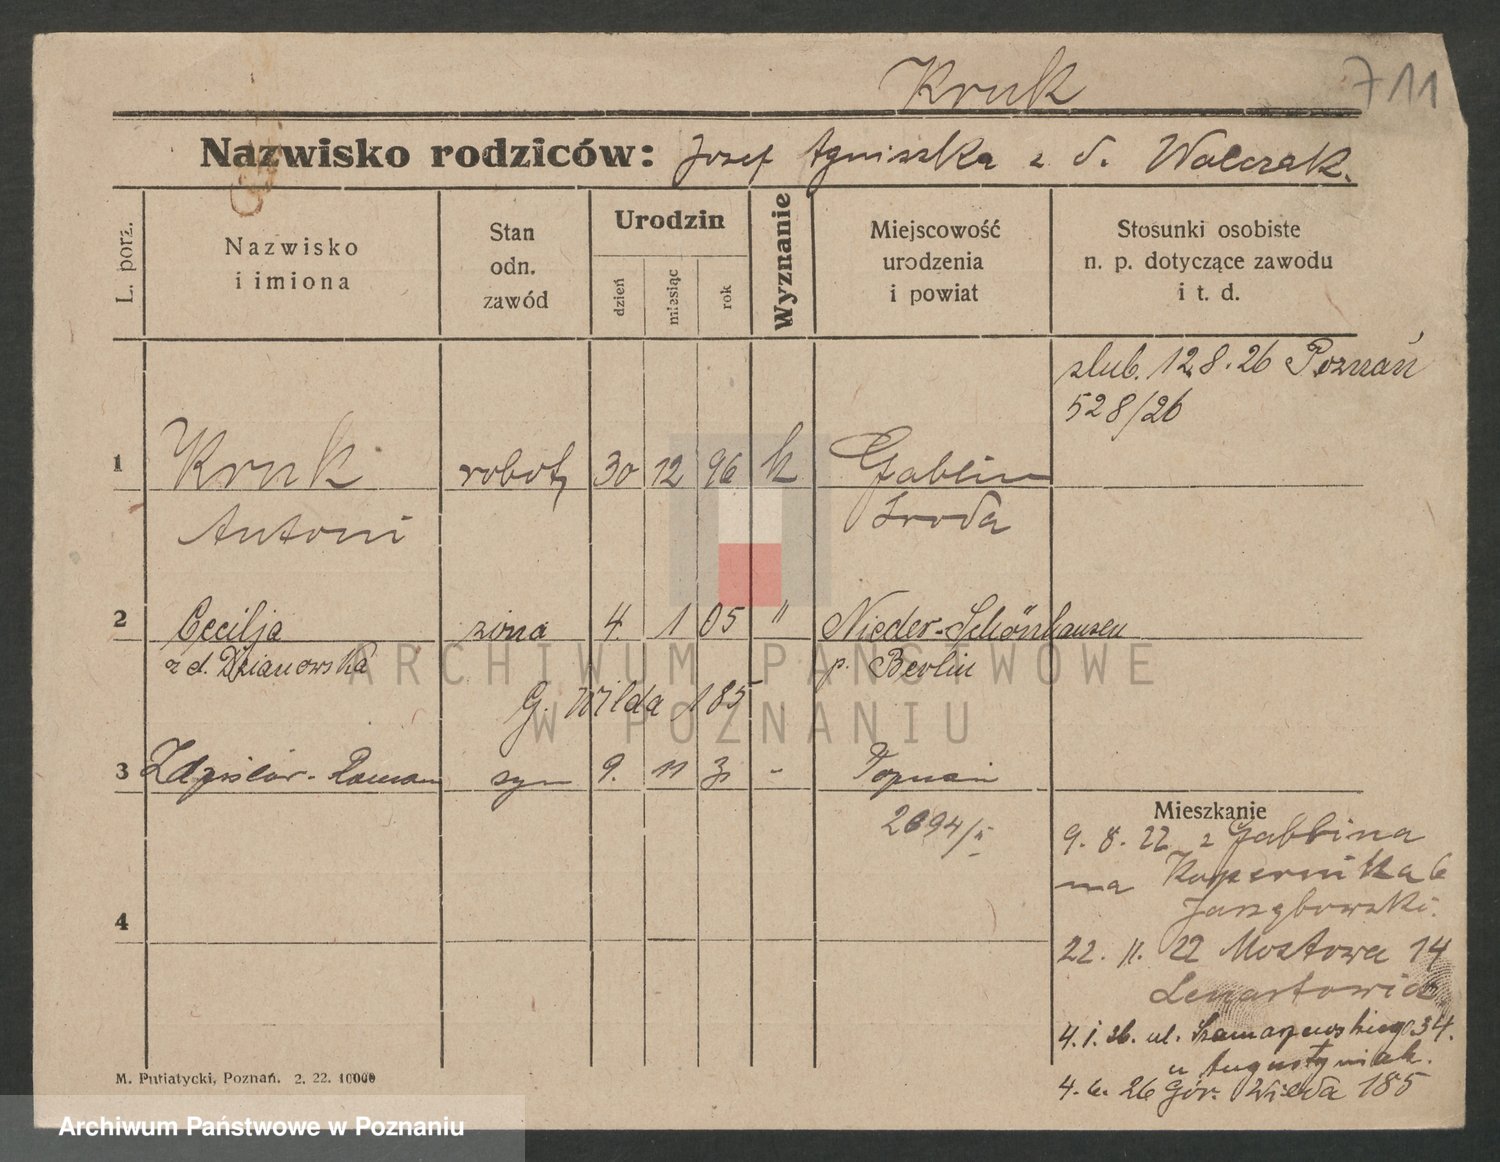 Kruk
711
Nazwisko rodziców: Josef Agniszka z d. Walczak.
L. porz.
Nazwisko
i imiona
Stan
odn.
zawód
Urodzin
dzień
miesiąc
rok
Wyznanie
Miejscowość
urodzenia
i powiat
Stosunki osobiste
n. p. dotyczące zawodu
i t. d.
slub. 12.8.26 Poznań
528/26
1 Kruk robot. 30 12 96 k Gablin
Antoni Sroda
2 Cecilja zona 4. 1 05 " Nieder-Schönhausen
z d. Dzianowska p. Berlin
G. Wilda 185
3 Zdzislaw-Roman syn 9. 11 31 - Poznań
2694/II
Mieszkanie
9. 8. 22 z Gabbina
na Kopernika 6
4
22. 11. 22 Mostowa 14
Lenartowicz
4. 1. 26. ul. Szamarzewskiego 34.
u Augustyniak.
4. 6. 26 Gór. Wilda 185
M. Putiatycki, Poznań. 2. 22. 10000
ARCHIWUM PAŃSTWOWE
W POZNANIU
Archiwum Państwowe w Poznaniu